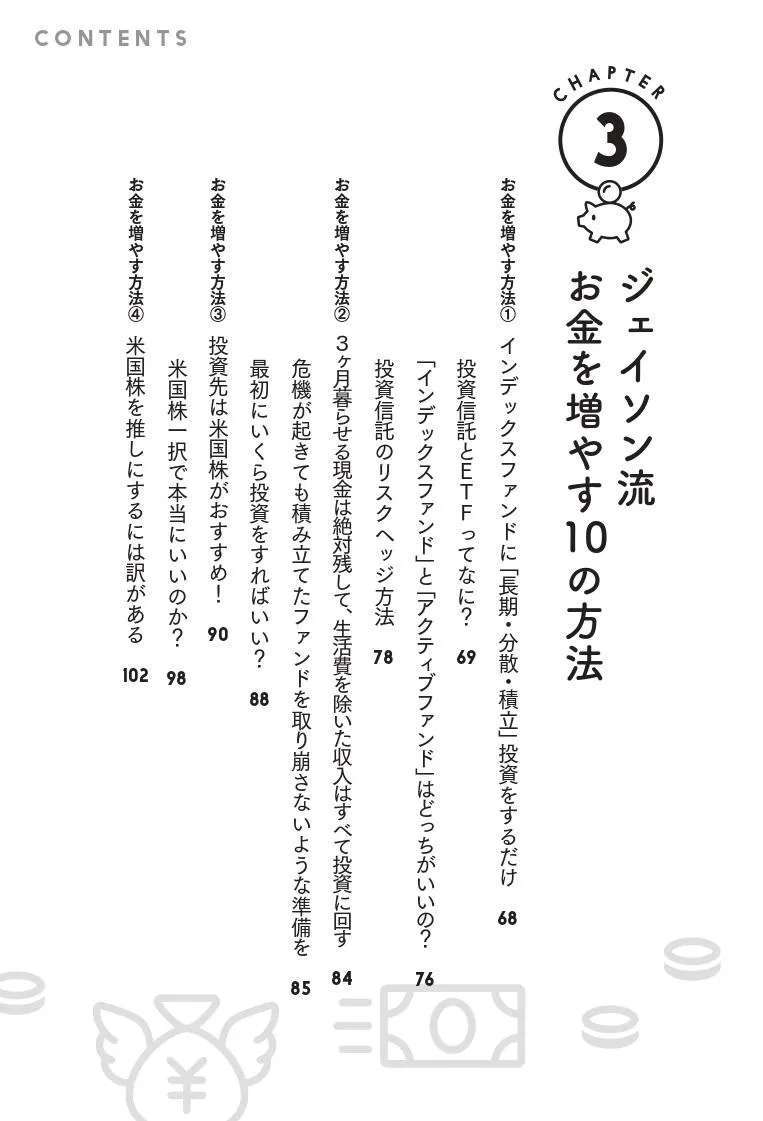 CONTENTS
CHAPTER
3
ジェイソン流
お金を増やす10の方法
お金を増やす方法① インデックスファンドに「長期・分散・積立」投資をするだけ 68
投資信託とETFってなに？ 69
「インデックスファンド」と「アクティブファンド」はどっちがいいの？ 76
投資信託のリスクヘッジ方法 78
お金を増やす方法② 3ヶ月暮らせる現金は絶対残して、生活費を除いた収入はすべて投資に回す 84
危機が起きても積み立てたファンドを取り崩さないような準備を 85
最初にいくら投資をすればいい？ 88
お金を増やす方法③ 投資先は米国株がおすすめ！ 90
米国株一択で本当にいいのか？ 98
お金を増やす方法④ 米国株を推しにするには訳がある 102
¥